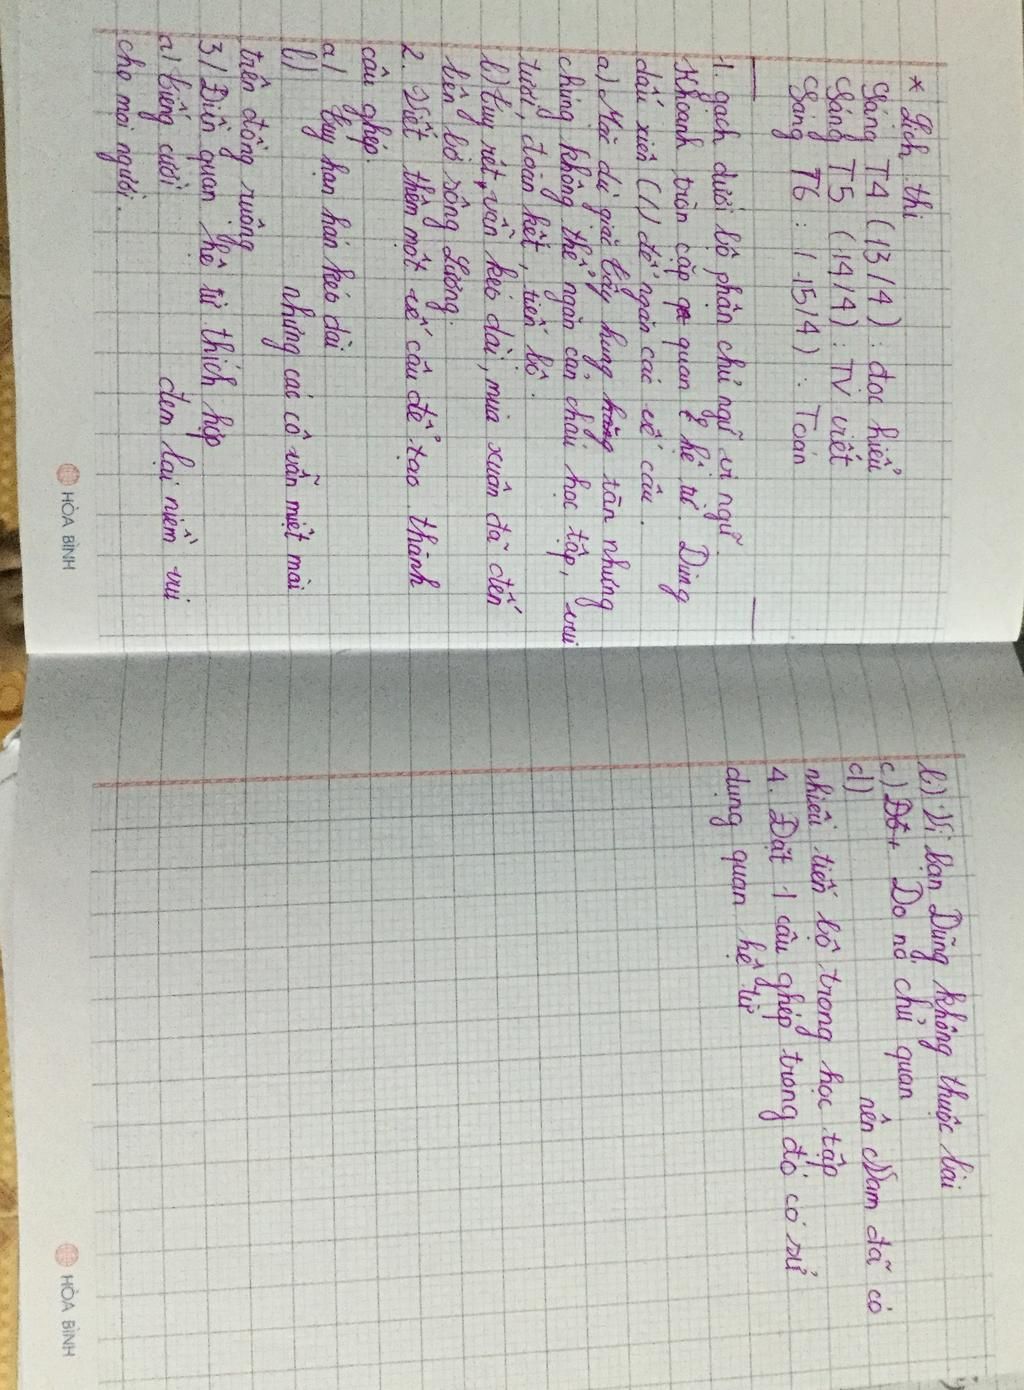 * Lịch thi
Sáng T4 (13/4) : đọc hiểu
Sáng T5 (14/4) : TV viết
Sáng T6 : (15/4) : Toán
1. gạch dưới bộ phận chủ ngữ vị ngữ.
Khoanh tròn cặp quan hệ từ. Dùng
dấu xiên (/) để ngăn các vế câu.
a) Mặc dù giặc Tây hung tàn nhưng
chúng không thể ngăn cản cháu học tập, vui
tươi, đoàn kết, tiến bộ.
b) Tuy rét vẫn kéo dài, mùa xuân đã đến
bên bờ sông Lương.
2. Viết thêm một vế câu để tạo thành
câu ghép.
a) Tuy hạn hán kéo dài
b) nhưng các cô vẫn miệt mài
trên đồng ruộng
3) Điền quan hệ từ thích hợp
a) tiếng cười đem lại niềm vui
cho mọi người.
HÒA BÌNH
b) Vì bạn Dũng không thuộc bài
c) Do nó chủ quan
d) nên Nam đã có
nhiều tiến bộ trong học tập
4. Đặt 1 câu ghép trong đó có sử
dụng quan hệ từ
HÒA BÌNH